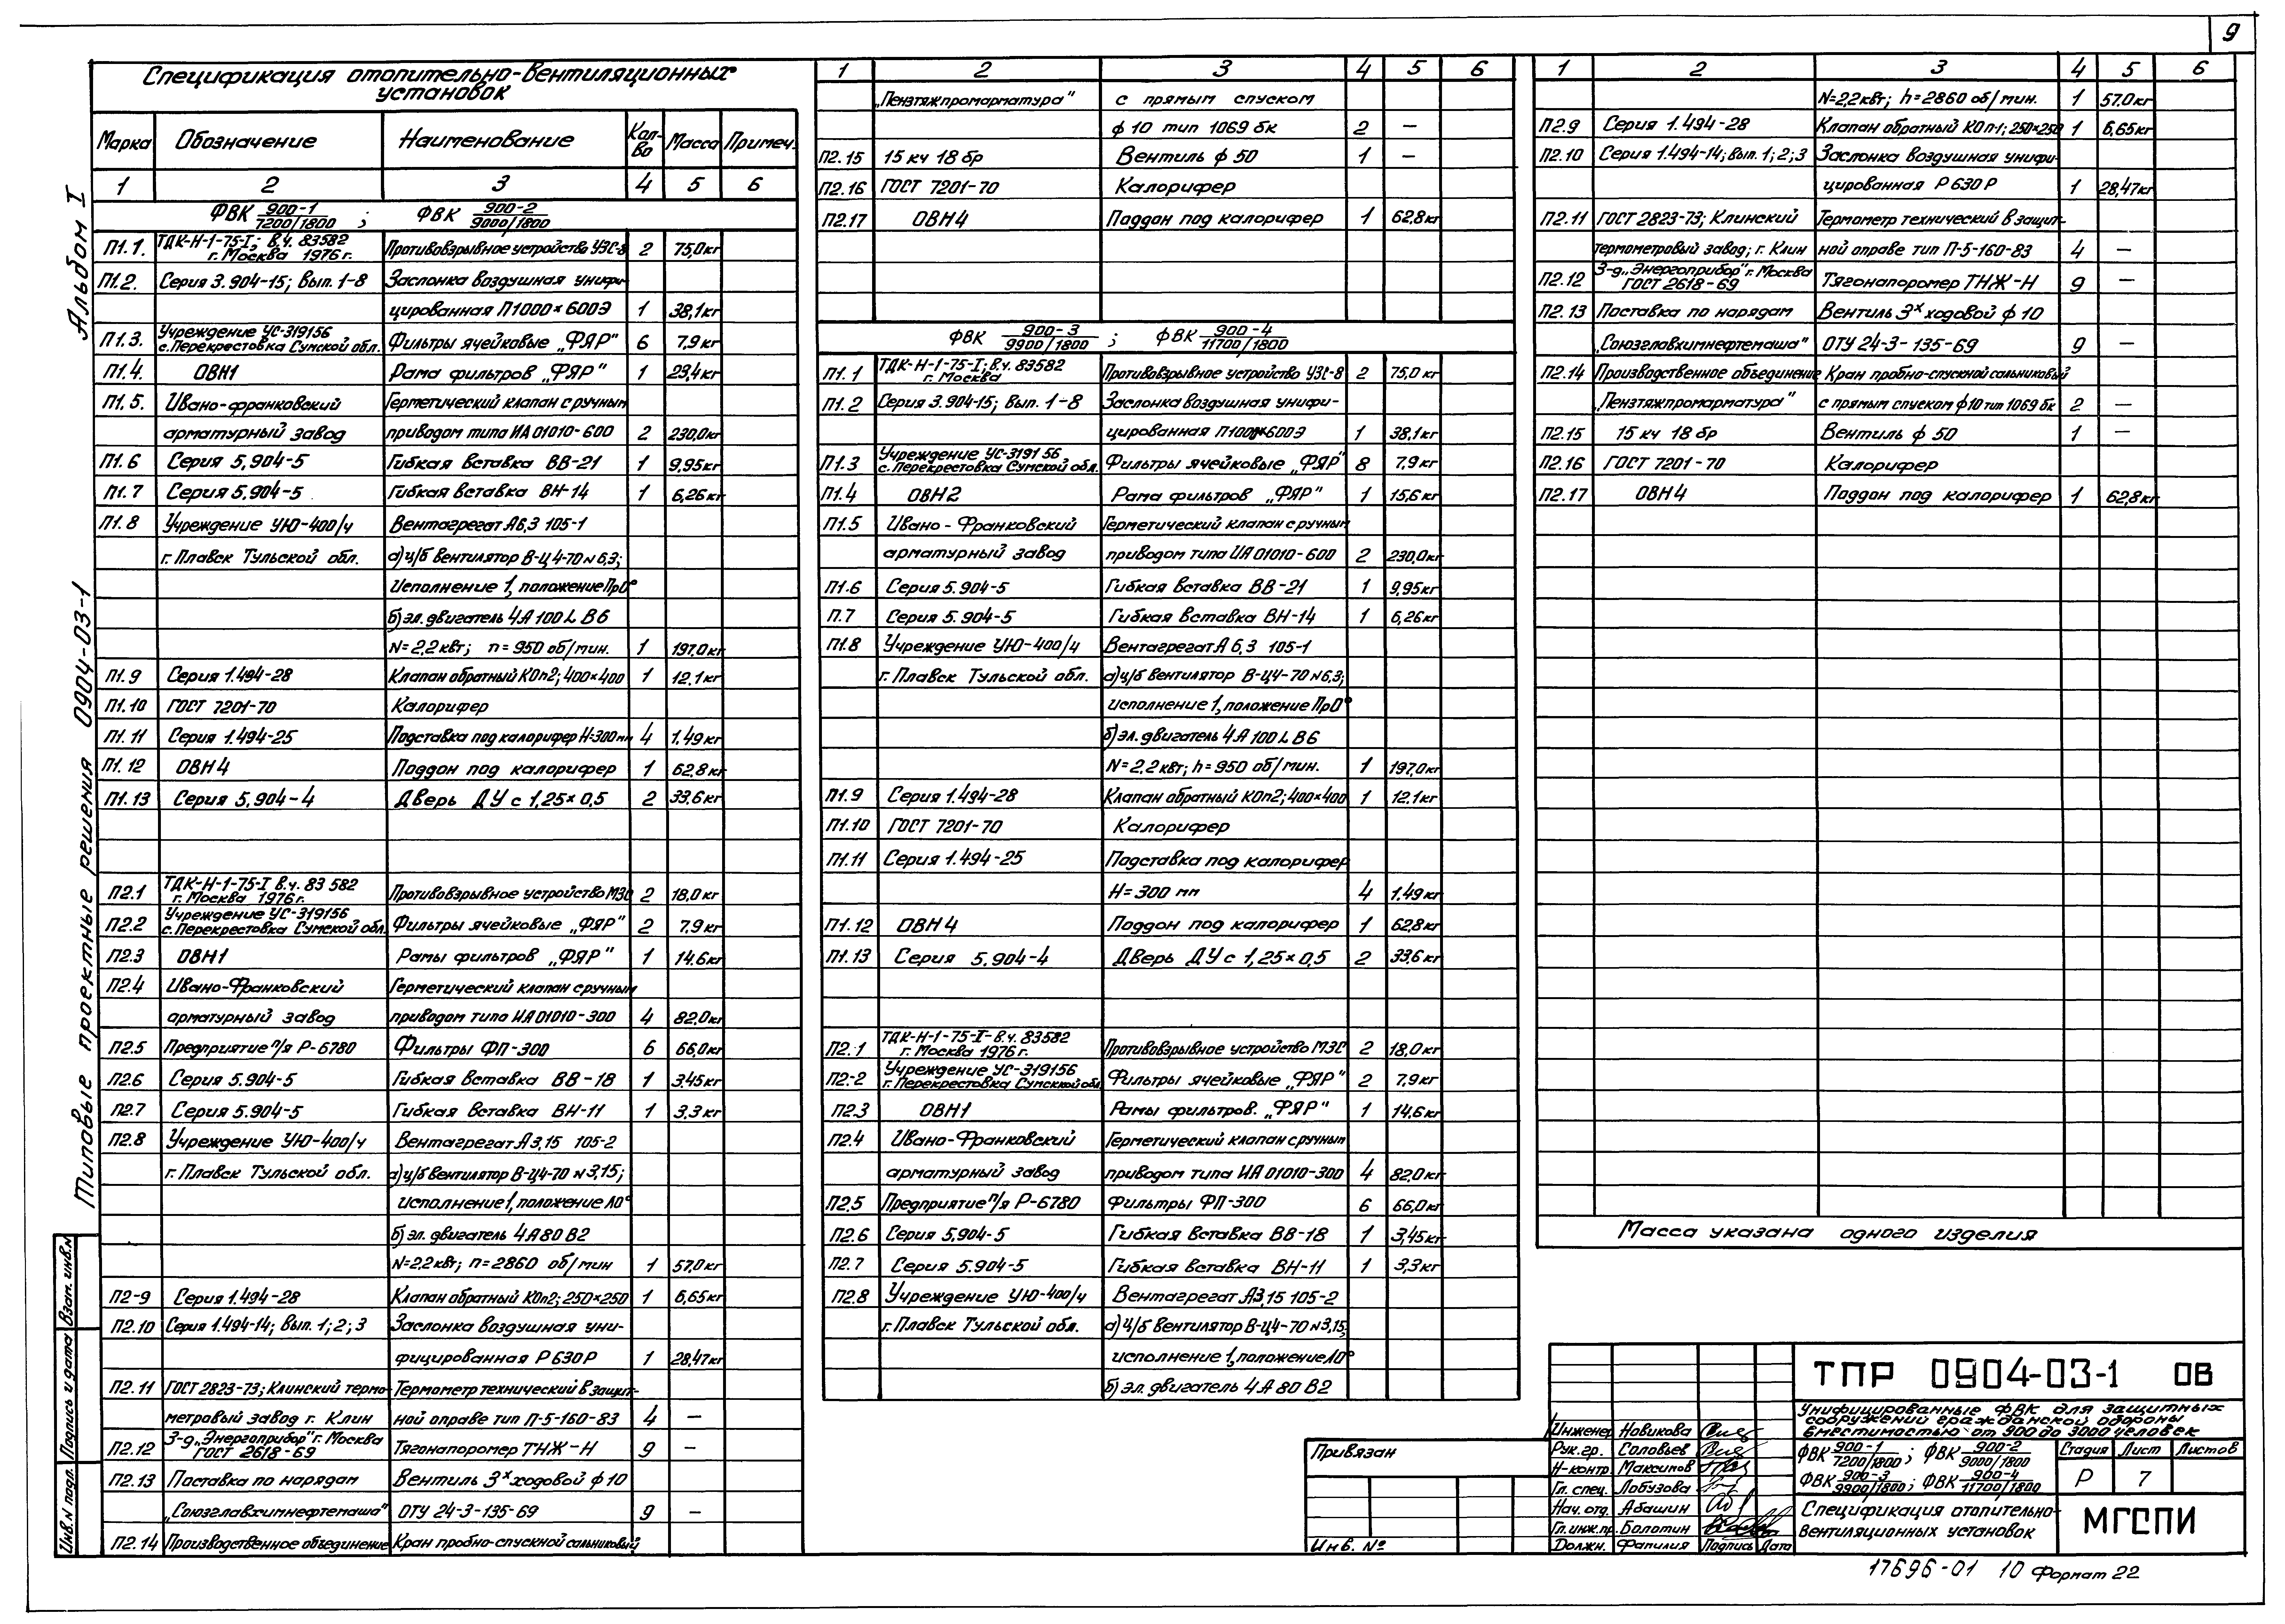 9
Альбом I
Типовые проектные решения 0904-03-1
Спецификация отопительно-вентиляционных
установок
Марка Обозначение Наименование Кол-во Масса Примеч.
1 2 3 4 5 6
ФВК 900-1 7200/1800 ; ФВК 900-2 9000/1800
П1.1. ТДК-Н-1-75-I; в.ч. 83582 г. Москва 1976г. Противовзрывное устройство УЗС-8 2 75,0кг
П1.2. Серия 3.904-15; Вып. 1-8 Заслонка воздушная унифи-
цированная П1000×600Э 1 38,1кг
П1.3. Учреждение УС-319156 с.Перекрестовка Сумской обл. Фильтры ячейковые „ФЯР" 6 7,9кг
П1.4. ОВН1 Рама фильтров „ФЯР" 1 23,4кг
П1.5. Ивано-франковский Герметический клапан с ручным
арматурный завод приводом типа ИА 01010-600 2 230,0кг
П1.6 Серия 5.904-5 Гибкая вставка ВВ-21 1 9,95кг
П1.7 Серия 5.904-5 Гибкая вставка ВН-14 1 6,26кг
П1.8 Учреждение УЮ-400/ч Вентагрегат А6,3 105-1
г. Плавск Тульской обл. а) ц/б вентилятор В-Ц4-70 №6,3;
Исполнение 1, положение Пр0°
б) эл. двигатель 4А 100 L В6
N=2,2квт; n=950 об/мин. 1 197,0кг
П1.9 Серия 1.494-28 Клапан обратный КОп2; 400×400 1 12,1кг
П1.10 ГОСТ 7201-70 Калорифер
П1.11 Серия 1.494-25 Подставка под калорифер Н=300мм 4 1,49кг
П1.12 ОВН4 Поддон под калорифер 1 62,8кг
П1.13 Серия 5.904-4 Дверь ДУ с 1,25×0,5 2 33,6кг
П2.1 ТДК-Н-1-75-I в.ч. 83 582 г. Москва 1976г. Противовзрывное устройство МЗС 2 18,0кг
П2.2 Учреждение УС-319156 с.Перекрестовка Сумской обл. Фильтры ячейковые „ФЯР" 2 7,9кг
П2.3 ОВН1 Рамы фильтров „ФЯР" 1 14,6кг
П2.4 Ивано-Франковский Герметический клапан с ручным
арматурный завод приводом типа ИА 01010-300 4 82,0кг
П2.5 Предприятие п/я Р-6780 Фильтры ФП-300 6 66,0кг
П2.6 Серия 5.904-5 Гибкая вставка ВВ-18 1 3,45кг
П2.7 Серия 5.904-5 Гибкая вставка ВН-11 1 3,3кг
П2.8 Учреждение УЮ-400/ч Вентагрегат А3,15 105-2
г. Плавск Тульской обл. а) ц/б вентилятор В-Ц4-70 №3,15;
исполнение 1, положение Л0°
б) эл. двигатель 4А80 В2
N=2,2квт; n=2860 об/мин 1 57,0кг
П2-9 Серия 1.494-28 Клапан обратный КОп2; 250×250 1 6,65кг
П2.10 Серия 1.494-14; Вып. 1; 2; 3 Заслонка воздушная уни-
фицированная Р 630 Р 1 28,47кг
П2.11 ГОСТ 2823-73; Клинский термо- Термометр технический в защит-
метровый завод г. Клин ной оправе тип П-5-160-83 4 —
П2.12 З-д „Энергоприбор" г. Москва ГОСТ 2618-69 Тягонапоромер ТНЖ-Н 9 —
П2.13 Поставка по нарядам Вентиль 3х ходовой ф 10
„Союзглавхимнефтемаша" ОТУ 24-3-135-69 9 —
П2.14 Производственное объединение Кран пробно-спускной сальниковый
1 2 3 4 5 6
„Пензтяжпромарматура" с прямым спуском
ф 10 тип 1069 бк 2 —
П2.15 15 кч 18 бр Вентиль ф 50 1 —
П2.16 ГОСТ 7201-70 Калорифер
П2.17 ОВН4 Поддон под калорифер 1 62,8кг
ФВК 900-3 9900/1800 ; ФВК 900-4 11700/1800
П1.1 ТДК-Н-1-75-I; в.ч. 83582 г. Москва Противовзрывное устройство УЗС-8 2 75,0кг
П1.2 Серия 3.904-15; Вып. 1-8 Заслонка воздушная унифи-
цированная П1000×600Э 1 38,1кг
П1.3 Учреждение УС-3191 56 с.Перекрестовка Сумской обл. Фильтры ячейковые „ФЯР" 8 7,9кг
П1.4 ОВН2 Рама фильтров „ФЯР" 1 15,6кг
П1.5 Ивано-Франковский Герметический клапан с ручным
арматурный завод приводом типа ИА 01010-600 2 230,0кг
П1.6 Серия 5.904-5 Гибкая вставка ВВ-21 1 9,95кг
П.7 Серия 5.904-5 Гибкая вставка ВН-14 1 6,26кг
П1.8 Учреждение УЮ-400/ч Вентагрегат А 6,3 105-1
г. Плавск Тульской обл. а) ц/б вентилятор В-Ц4-70 №6,3;
исполнение 1, положение Пр0°
б) эл. двигатель 4А 100 L В6
N=2,2квт; h=950 об/мин. 1 197,0кг
П1.9 Серия 1.494-28 Клапан обратный КОп2; 400×400 1 12,1кг
П1.10 ГОСТ 7201-70 Калорифер
П1.11 Серия 1.494-25 Подставка под калорифер
Н=300 мм 4 1,49кг
П1.12 ОВН4 Поддон под калорифер 1 62,8кг
П1.13 Серия 5.904-4 Дверь ДУ с 1,25×0,5 2 33,6кг
П2.1 ТДК-Н-1-75-I-в.ч. 83582 г. Москва 1976г. Противовзрывное устройство МЗС 2 18,0кг
П2-2 Учреждение УС-319156 г. Перекрестовка Сумской обл. Фильтры ячейковые „ФЯР" 2 7,9кг
П2.3 ОВН1 Рамы фильтров. „ФЯР" 1 14,6кг
П2.4 Ивано-Франковский Герметический клапан с ручным
арматурный завод приводом типа ИА 01010-300 4 82,0кг
П2.5 Предприятие п/я Р-6780 Фильтры ФП-300 6 66,0кг
П2.6 Серия 5.904-5 Гибкая вставка ВВ-18 1 3,45кг
П2.7 Серия 5.904-5 Гибкая вставка ВН-11 1 3,3кг
П2.8 Учреждение УЮ-400/ч Вентагрегат А3,15 105-2
г. Плавск Тульской обл. а) ц/б вентилятор В-Ц4-70 №3,15;
исполнение 1, положение Л0°
б) эл. двигатель 4А 80 В2
1 2 3 4 5 6
N=2,2квт; h=2860 об/мин. 1 57,0кг
П2.9 Серия 1.494-28 Клапан обратный КОп1; 250×250 1 6,65кг
П2.10 Серия 1.494-14; Вып. 1; 2; 3 Заслонка воздушная унифи-
цированная Р 630 Р 1 28,47кг
П2.11 ГОСТ 2823-73; Клинский Термометр технический в защит-
термометровый завод; г. Клин ной оправе тип П-5-160-83 4 —
П2.12 З-д „Энергоприбор" г. Москва ГОСТ 2618-69 Тягонапоромер ТНЖ-Н 9 —
П2.13 Поставка по нарядам Вентиль 3х ходовой ф 10
„Союзглавхимнефтемаша" ОТУ 24-3-135-69 9 —
П2.14 Производственное объединение Кран пробно-спускной сальниковый
„Пензтяжпромарматура" с прямым спуском ф 10 тип 1069 бк 2 —
П2.15 15 кч 18 бр Вентиль ф 50 1 —
П2.16 ГОСТ 7201-70 Калорифер
П2.17 ОВН4 Поддон под калорифер 1 62,8кг
Масса указана одного изделия
ТПР 0904-03-1 ОВ
Унифицированные ФВК для защитных
сооружений гражданской обороны
вместимостью от 900 до 3000 человек
ФВК 900-1 7200/1800 ; ФВК 900-2 9000/1800
ФВК 900-3 9900/1800 ; ФВК 900-4 11700/1800
Стадия Лист Листов
Р 7
Спецификация отопительно-
вентиляционных установок
МГСПИ
Инженер Новикова
Рук. гр. Соловьев
Н-контр Максимов
Гл. спец. Лобузова
Нач. отд. Абашин
Гл. инж. пр. Болотин
Должн. Фамилия Подпись Дата
Привязан
Инв. №
Взам. инв.№
Подпись и дата
Инв.№ подл.
17696-01 10 Формат 22